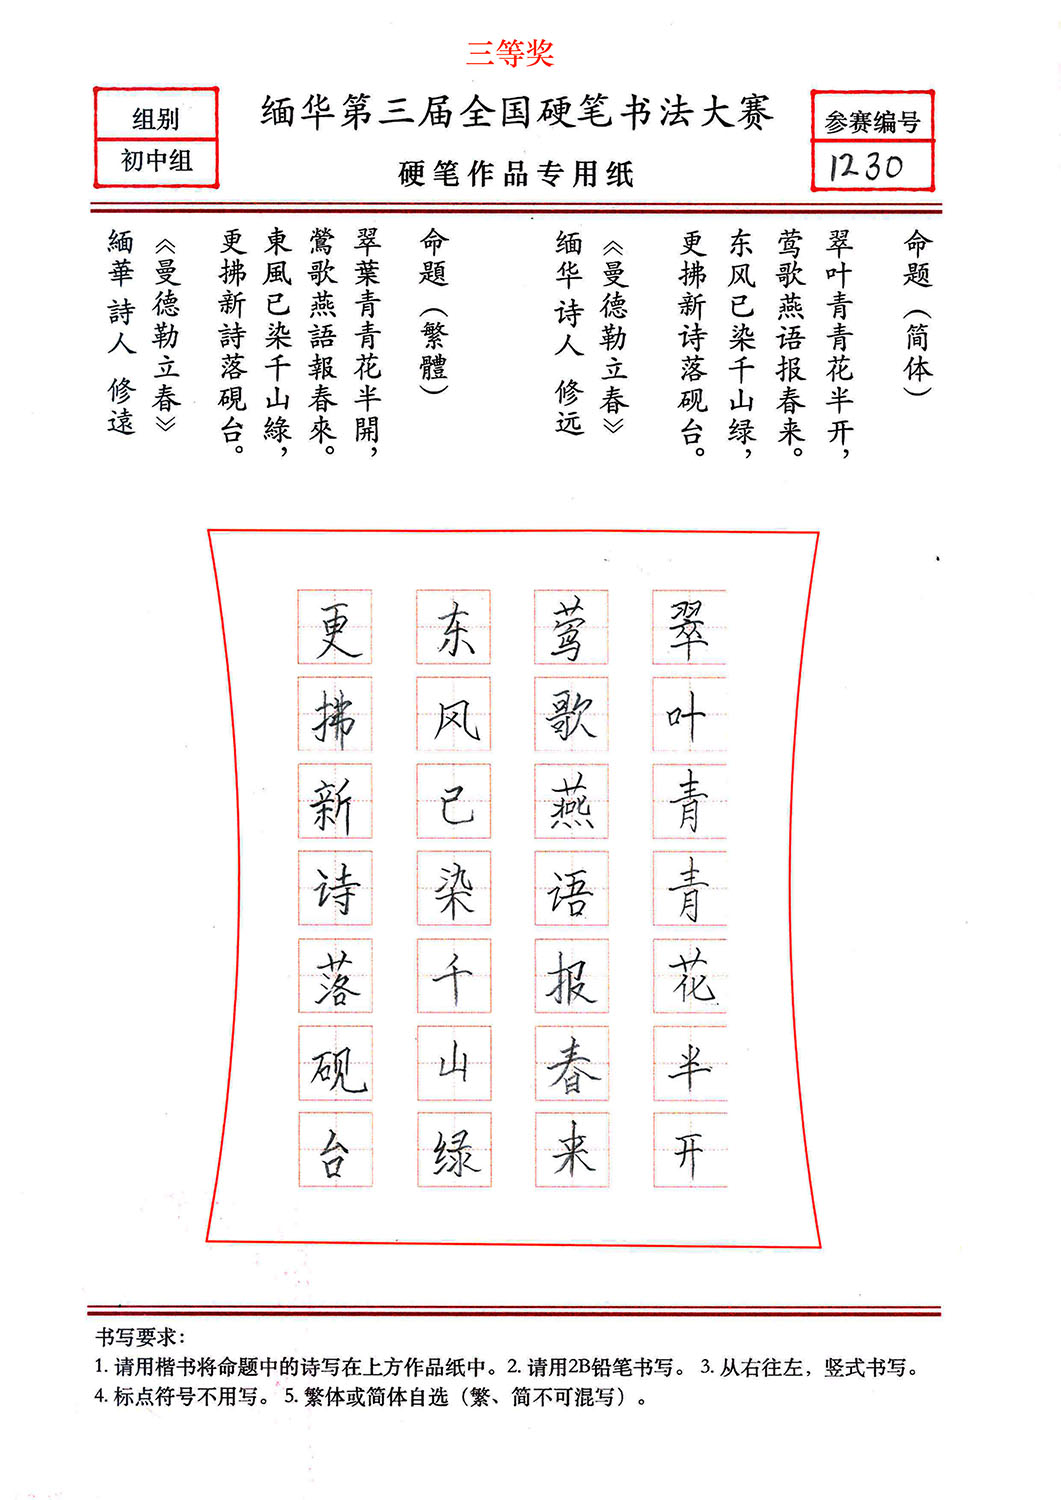 三等奖
组别
初中组
缅华第三届全国硬笔书法大赛
硬笔作品专用纸
参赛编号
1230
命题（简体）
翠叶青青花半开，
莺歌燕语报春来。
东风已染千山绿，
更拂新诗落砚台。
《曼德勒立春》
缅华诗人 修远
命題（繁體）
翠葉青青花半開，
鶯歌燕語報春來。
東風已染千山綠，
更拂新詩落硯台。
《曼德勒立春》
緬華詩人 修遠
翠叶青青花半开
莺歌燕语报春来
东风已染千山绿
更拂新诗落砚台
书写要求：
1. 请用楷书将命题中的诗写在上方作品纸中。2. 请用2B铅笔书写。 3. 从右往左，竖式书写。
4. 标点符号不用写。 5. 繁体或简体自选（繁、简不可混写）。